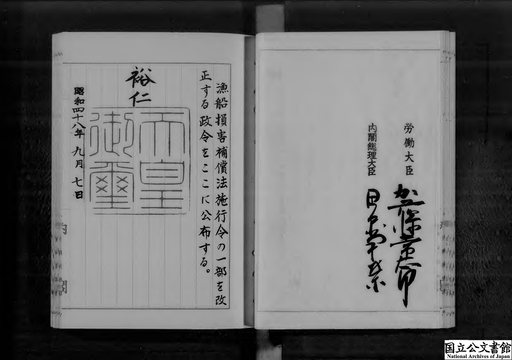 労働大臣
加藤常太郎
内閣総理大臣
田中角栄
漁船損害補償法施行令の一部を改
正する政令をここに公布する。
裕仁
天皇
御璽
昭和四十八年九月七日
国立公文書館
National Archives of Japan